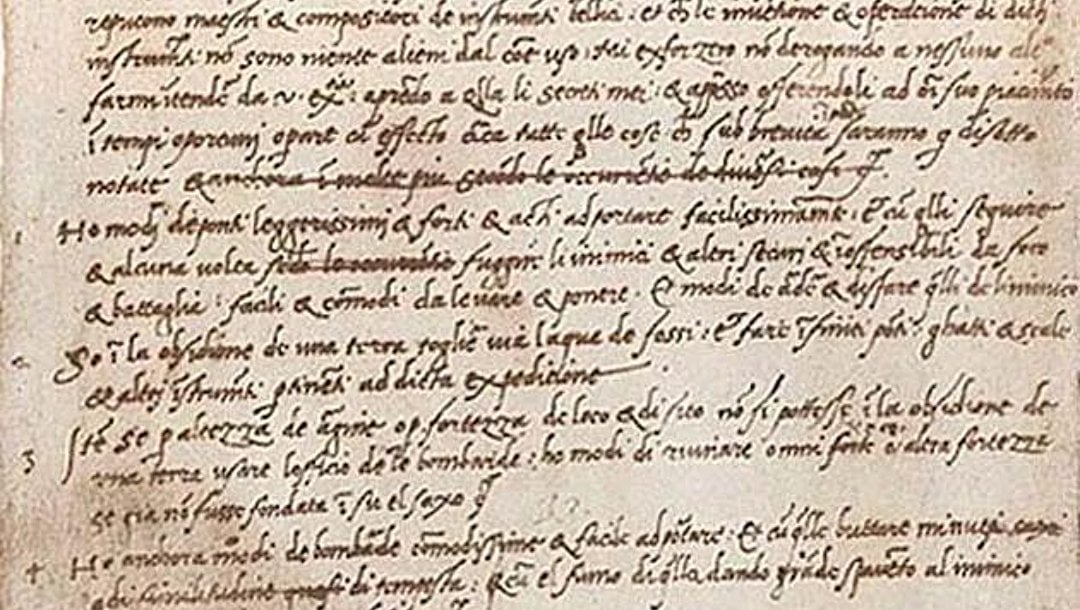 reputono maestri & compositori de instrumti bellici: et ch le inventione & operatione di dicti
instrumti nõ sono niente alieni dal cõe uso: Mi exforzero nõ derogando a nessuno al
farmi intende da v. ex.tia: aprẽdo a qlla li secreti mei: & appsso offerendoli ad oi suo piacimto
ĩ tempi oportuni operare cũ effecto circa tutte qlle cose ch sub brevità ĩ parte saranno q disotto
notate & anchora ĩ molte piu secõdo le occurrẽtie de diuersi casi
1 Ho modi de ponti leggerissimi & forti & acti ad portare facilissimamẽte: Et cũ qlli seguire
& alcuna uolta fuggir li inimici & altri securi & ĩoffensibili da foco
& battaglia: facili & cõmodi da leuare & ponere. Et modi de ardẽ & disfare qlli de linimico
2 So ĩ la obsidione de una terra toglie uia laqua de fossi: et fare ĩfiniti põti ghatti & scale
& altri ĩstrumti ptinẽti ad dicta expeditione
3 Itẽ se p altezza de argine o p fortezza de loco & di sito nõ si potesse ĩ la obsidione de
una terra usare lofficio de le bombarde: ho modi di ruinare omni forte o altra fortezza
se gia nõ fusse fondata ĩ su el saxo
4 Ho anchora modi de bombarde cõmodissime & facile ad portare: Et cũ qlle buttare minuti
di tempesta: & cũ el fumo di qlla dando grãde spauẽto al inimico